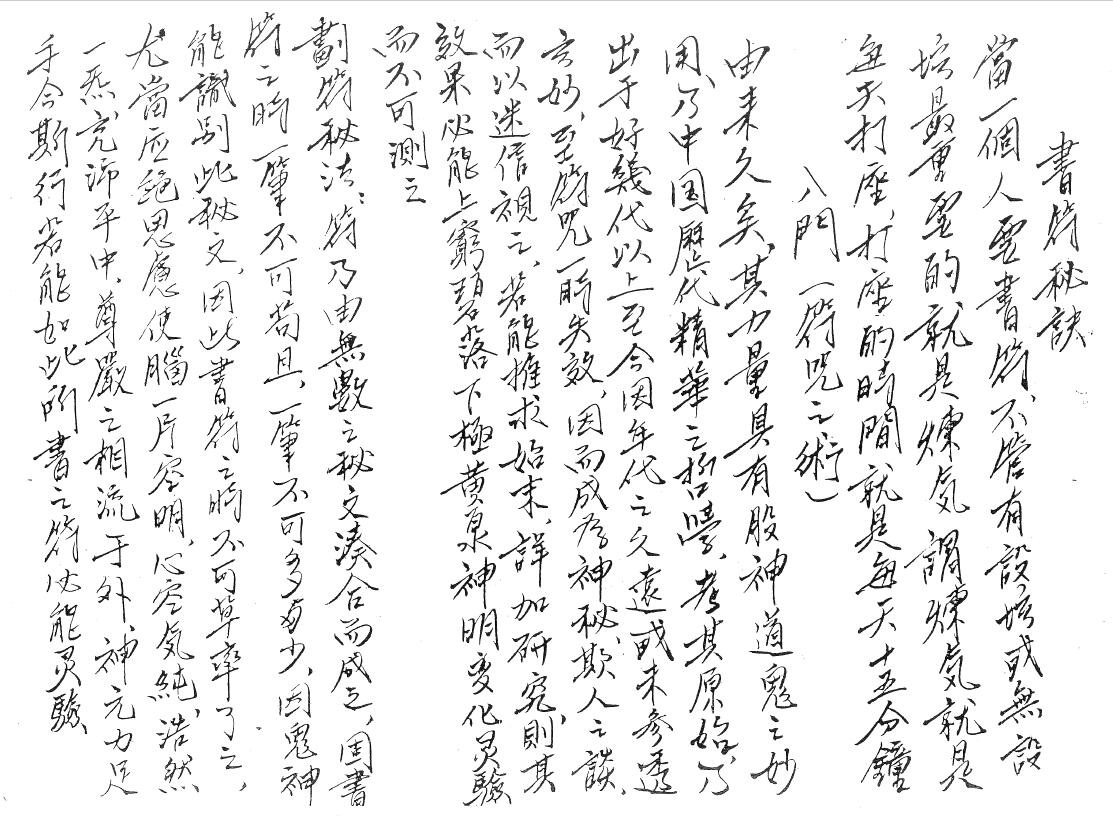 書符秘訣
當一個人要書符、不管有設壇或無設
壇最重要的就是煉気謂煉気就是
每天打座，打座的時間就是每天十五分鐘
八門（符咒之術）
由来久矣，其力量具有股神道鬼之妙
用、乃中国歷代精華之哲學，考其原始，乃
出于好幾代以上至今因年代之久遠或未参透
玄妙，至符咒一時失效，因而成为神秘，欺人之談，
而以迷信視之，若能推求始末，詳加研究，則其
效果必能上窮碧落下極黄泉神明变化灵驗
而不可測之
劃符秘法：符乃由無數之秘文湊合而成之，固書
符之時一筆不可苟且，一筆不可多為少，因鬼神
能識别此秘文，因此書符之時不可草率了之，
尤當应絕思慮使腦一片空明，心空気純，浩然
一炁，充沛平中，尊嚴之相流于外，神元力足
手令斯行若能如此所書之符必能灵驗、